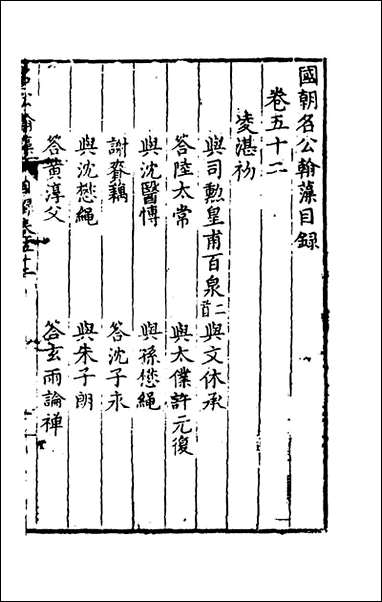 國朝名公翰藻目録
卷五十二
凌湛初
與司勲皇甫百泉二首 與文休承
答陸太常 與太僕許元復
與沈醫博 與孫懋繩
謝齎藕 答沈子永
與沈懋繩 與朱子朗
答黄淳父 答玄雨論禅
名公翰藻 目録卷五十二